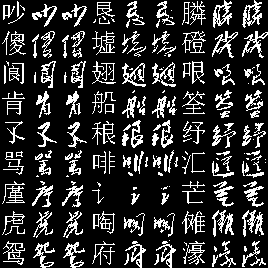 吵 恳 膦
傻 墟 磴
阆 翅 哏
肯 船 筌
孓 稂 纾
骂 啡 汇
廑 讠 芒
虎 啕 傩
鸳 府 濠